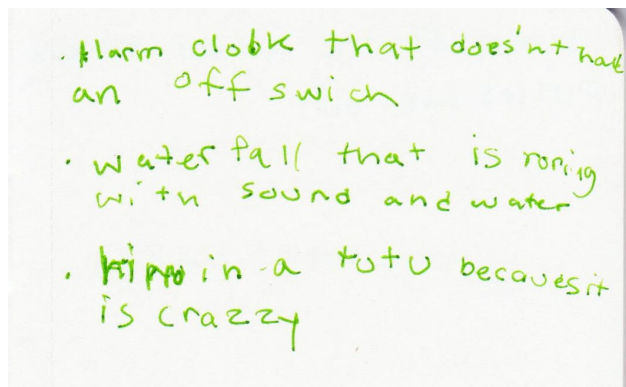 · Alarm clobk that does'nt have
an off swich
· water fall that is roring
with sound and water
· hippo in a tutu becauesit
is crazzy